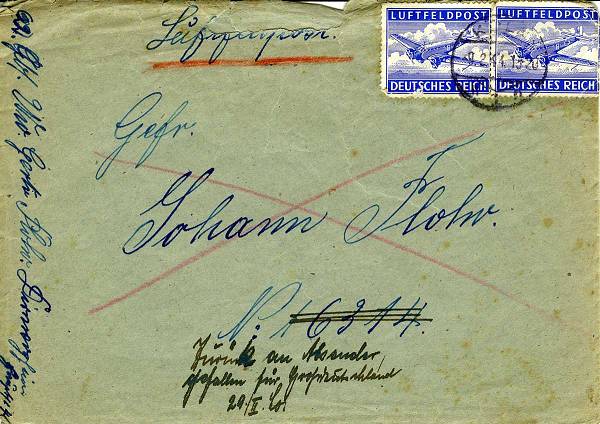 Luftfeldpost.
LUFTFELDPOST
DEUTSCHES REICH
LUFTFELDPOST
DEUTSCHES REICH
Gefr.
Johann Flohr.
No: 16314.
Zurück an Absender,
gefallen für Großdeutschland
29.II.